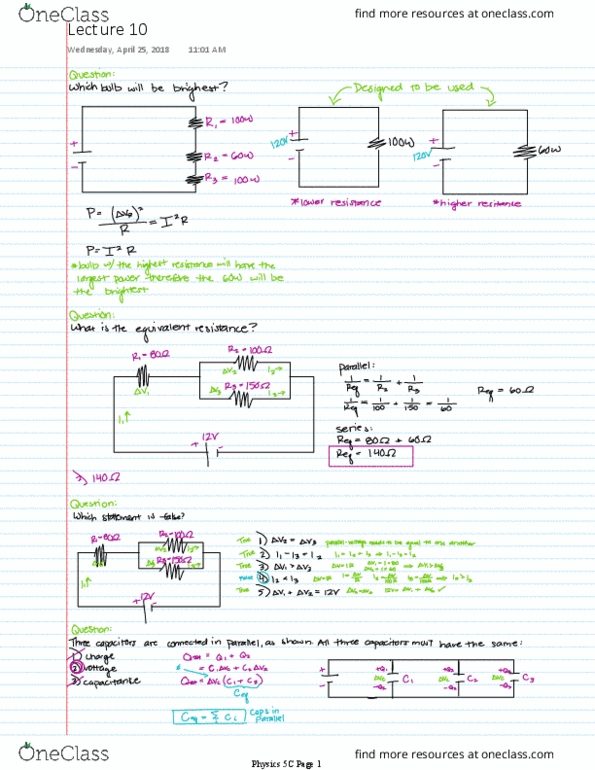 OneClass
find more resources at oneclass.com
Lecture 10
Wednesday, April 25, 2018 11:01 AM
Question:
Which bulb will be brightest?
Designed to be used
R₁ = 100W
R₂ = 60W
R₃ = 100W
+
-
120V
+
-
100W
120V
+
-
60W
*lower resistance
*higher resitance
P = (ΔV)²/R = I²R
P = I²R
*bulb w/ the highest resistance will have the
largest power therefore the 60W will be
the brightest
Question:
What is the equivalent resistance?
R₁ = 80Ω
R₂ = 100Ω
R₃ = 150Ω
ΔV₁
ΔV₂
I₂→
ΔV₃
I₃→
I₁↑
12V
+
-
parallel:
1/Req = 1/R₂ + 1/R₃
1/Req = 1/100 + 1/150 = 1/60
Req = 60Ω
series:
Req = 80Ω + 60Ω
Req = 140Ω
140Ω
Question:
Which statement is false?
R₁=80Ω
R₂=100Ω
R₃=150Ω
12V
+
True 1) ΔV₂ = ΔV₃
True 2) I₁ - I₃ = I₂ I₁ = I₂ + I₃ ⇒ I₁ - I₃ = I₂
True 3) ΔV₁ > ΔV₂
False 4) I₂ < I₃
True 5) ΔV₁ + ΔV₂ = 12V
Question:
Three capacitors are connected in parallel, as shown. All three capacitors must have the same:
1) charge
2) voltage
3) capacitance
= C₁ΔV₁ + C₂ΔV₂
Ceq
Ceq = Σ Ci
caps in
parallel
+Q₁
ΔV₁
-Q₁
C₁
+Q₂
ΔV₂
-Q₂
C₂
+Q₃
ΔV₃
-Q₃
C₃
OneClass
find more resources at oneclass.com
Physics 5C Page 1